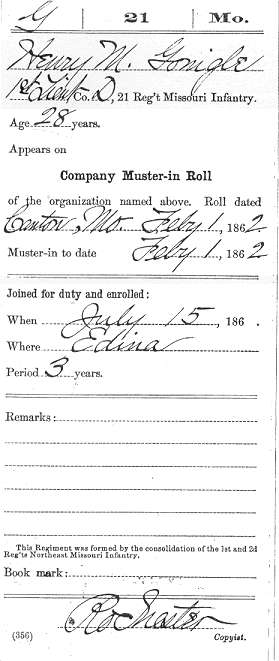 G | 21 | Mo.
Henry M. Gonigle
1st Lieut Co. D, 21 Reg't Missouri Infantry.
Age 28 years.
Appears on
Company Muster-in Roll
of the organization named above. Roll dated
Canton, Mo. Feby 1, 1862
Muster-in to date Feby 1, 1862
Joined for duty and enrolled:
When July 15, 186 .
Where Edina
Period 3 years.
Remarks:
This Regiment was formed by the consolidation of the 1st and 2d
Reg'ts Northeast Missouri Infantry.
Book mark:
(356) Copyist.